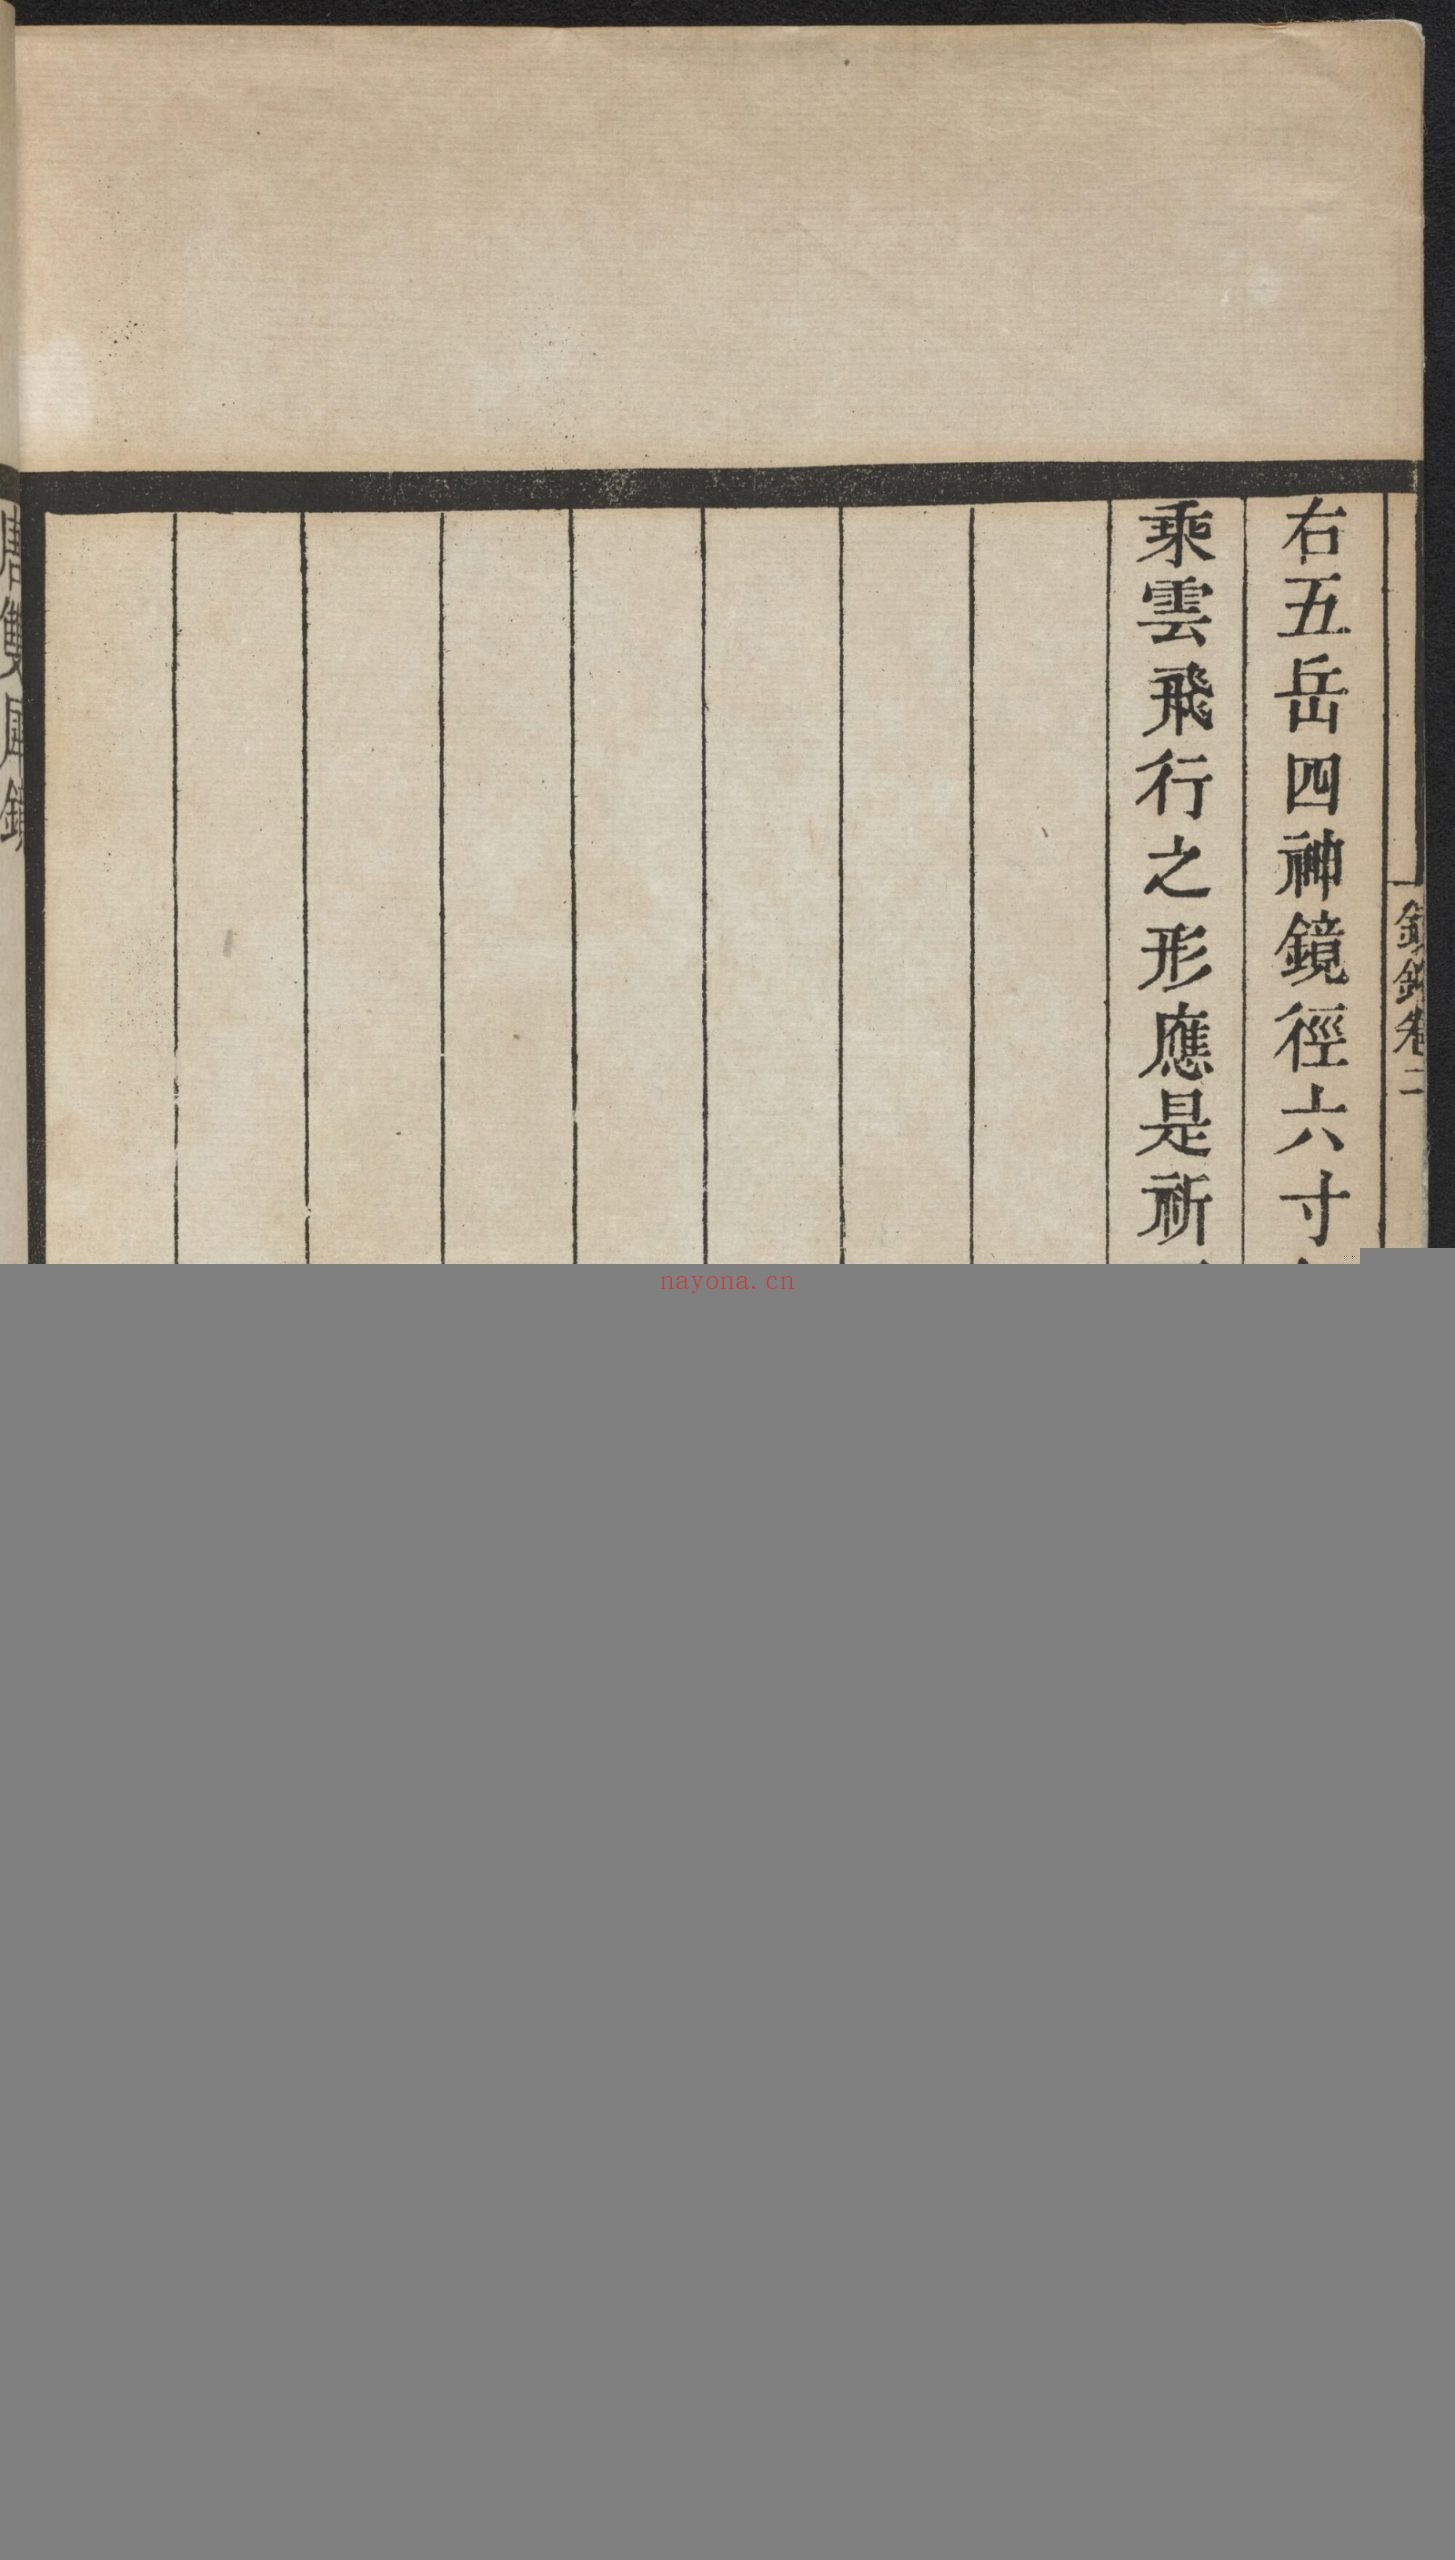 右五岳四神鏡徑六寸
乘雲飛行之形應是祈
鏡錄卷二
唐雙犀鏡
nayona.cn